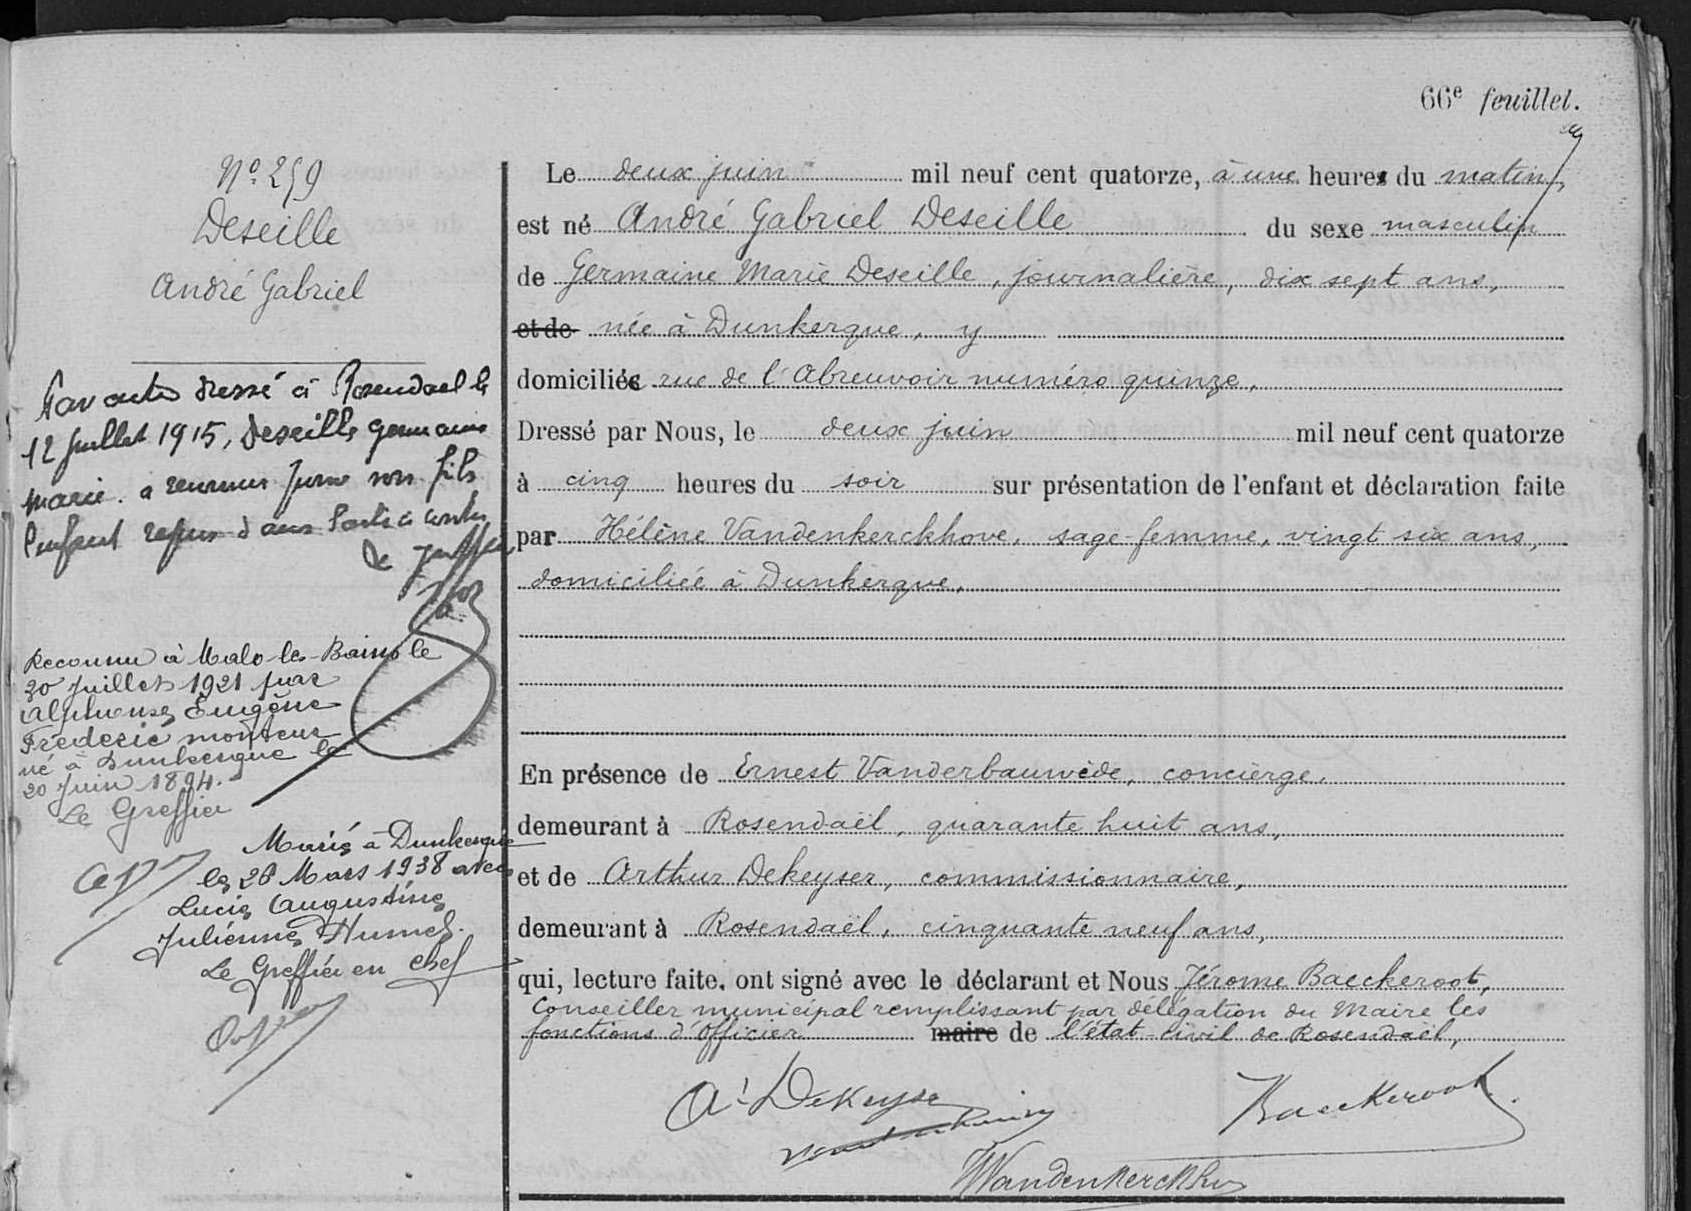 66e feuillet.
No 259
Deseille
André Gabriel
Par acte dressé à Rosendael le
12 Juillet 1915, Deseille Germaine
Marie. a reconnu pour son fils
l'enfant repris dans l'acte ci contre
Le Greffier
Reconnu à Malo-les-Bains le
30 Juillet 1921 par
Alphonse Eugène
Fréderic monteur
né à Dunkerque le
20 Juin 1894.
Le Greffier
Marié à Dunkerque
le 26 Mars 1938 avec
Lucie Augustine
Julienne Humel.
Le Greffier en chef
Le deux juin mil neuf cent quatorze, à une heures du matin,
est né André Gabriel Deseille du sexe masculin
de Germaine Marie Deseille, journalière, dix sept ans,
et de née à Dunkerque, y
domiciliée rue de l'Abreuvoir numéro quinze,
Dressé par Nous, le deux juin mil neuf cent quatorze
à cinq heures du soir sur présentation de l'enfant et déclaration faite
par Hélène Vandenkerckhove, sage-femme, vingt six ans,
domiciliée à Dunkerque,
En présence de Ernest Vanderbauwède, concierge,
demeurant à Rosendaël, quarante huit ans,
et de Arthur Dekeyser, commissionnaire,
demeurant à Rosendaël, cinquante neuf ans,
qui, lecture faite, ont signé avec le déclarant et Nous Jérome Baeckeroot,
Conseiller municipal remplissant par délégation du Maire les
fonctions d'officier maire de l'état-civil de Rosendaël,
A. Dekeyser
Baeckeroot
Vandenkerckhove